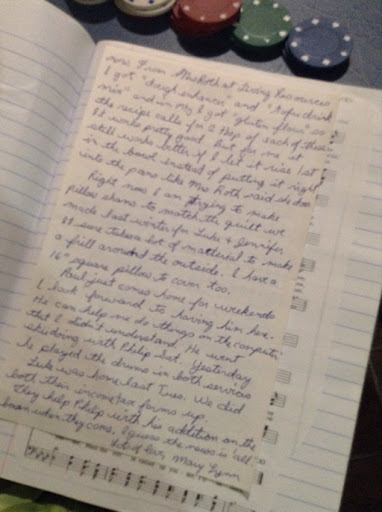 now. From Mrs Roth at Living Resources
I got "dough enhancer" and "tofu drink
mix" and in my I got "gluten flour" so
the recipe calls for 2 tbsp of each of those
It works pretty good. But for me it
still works better if I let it rise 1st
in the bowl instead of putting it right
into the pans like Mrs Roth said she does.
Right now I am trying to make
pillow shams to match the quilt we
made last winter for Luke & Jennifer.
It sure takes a lot of material to make
a frill around the outside. I have a
16" square pillow to cover too.
Paul just comes home for weekends
I look forward to having him here.
He can help me do things on the computer
that I didn't understand. He went
skydiving with Philip Sat. Yesterday
he played the drums in both services
Luke was home last Tues. We did
both their income tax forms up.
They help Philip with his addition on the
barn when they come. I guess the news is all
Lots of love, Mary Lynn